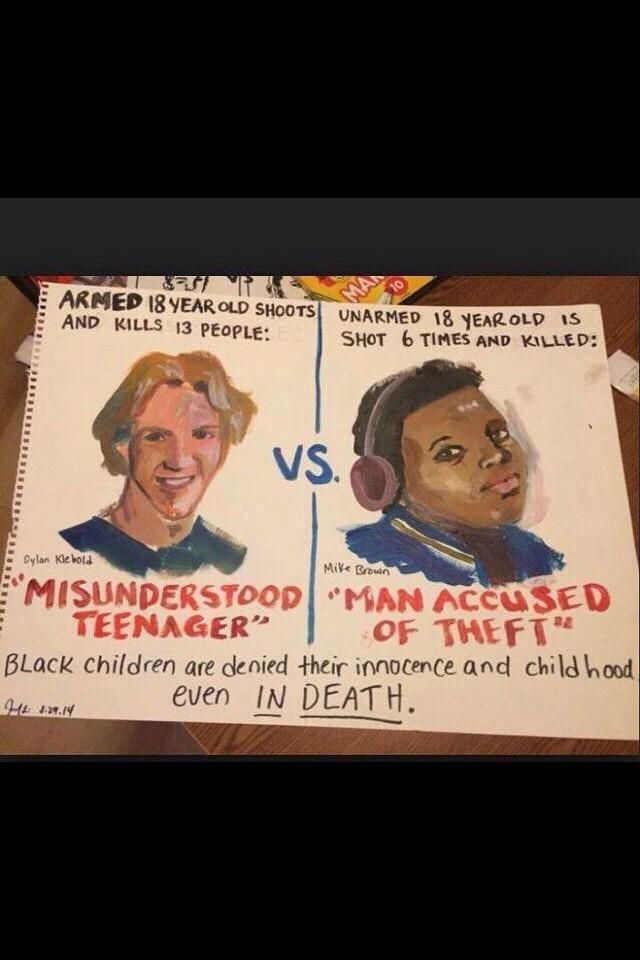 MAN
10
ARMED 18 YEAR OLD SHOOTS
AND KILLS 13 PEOPLE:
UNARMED 18 YEAR OLD IS
SHOT 6 TIMES AND KILLED:
VS.
Dylan Klebold
Mike Brown
"MISUNDERSTOOD
TEENAGER"
"MAN ACCUSED
OF THEFT"
BLACK children are denied their innocence and childhood
even IN DEATH.